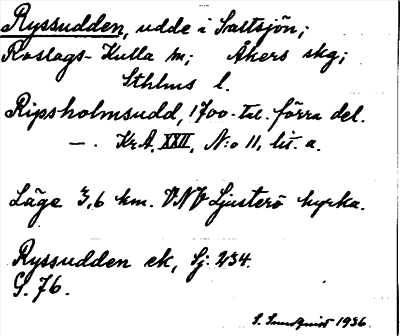 Ryssudden, udde i Saltsjön;
Roslags-Kulla sn; Åkers skg;
Sthlms l.
Ripsholmsudd, 1700-tal. förra del.
—. KrA, XXII, N:o 11, lit. a.
Läge 3,6 km. VNV Ljusterö kyrka.
Ryssudden ek, Sj. 234.
S. 76.
S. Sundquist 1936.